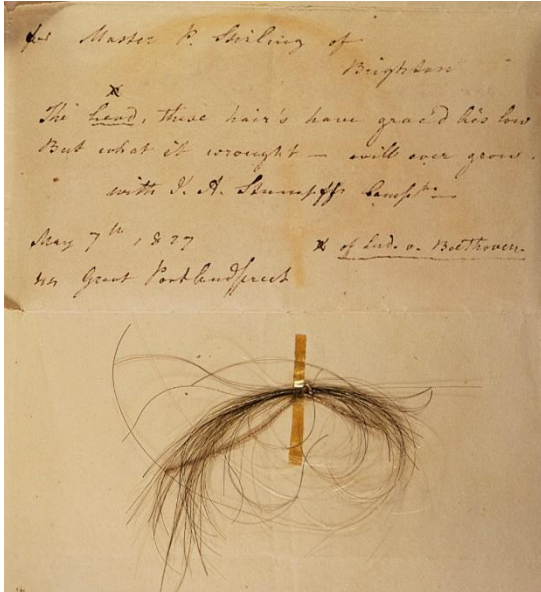 for Master P. Stirling of
Brighton
x
The head, these hair's have grac'd lies low
But what it wrought – will ever grow.
with J. A. Stumpff's Compts.
May 7th, 1827
x of Lud. v. Beethoven.
Great Portland street